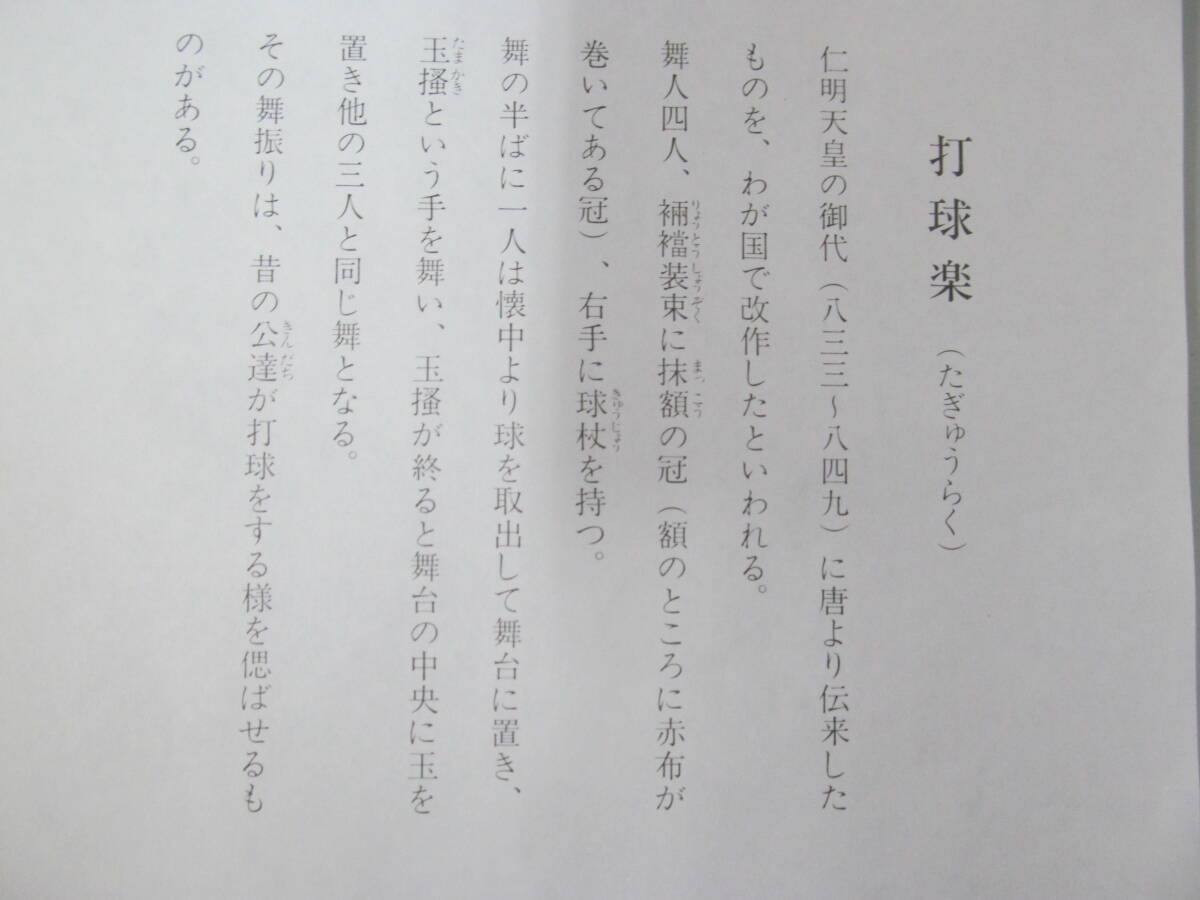 打球楽（たぎゅうらく）
仁明天皇の御代（八三三～八四九）に唐より伝来した
ものを、わが国で改作したといわれる。
舞人四人、裲襠装束に抹額の冠（額のところに赤布が
巻いてある冠）、右手に球杖を持つ。
舞の半ばに一人は懐中より球を取出して舞台に置き、
玉掻という手を舞い、玉掻が終ると舞台の中央に玉を
置き他の三人と同じ舞となる。
その舞振りは、昔の公達が打球をする様を偲ばせるも
のがある。